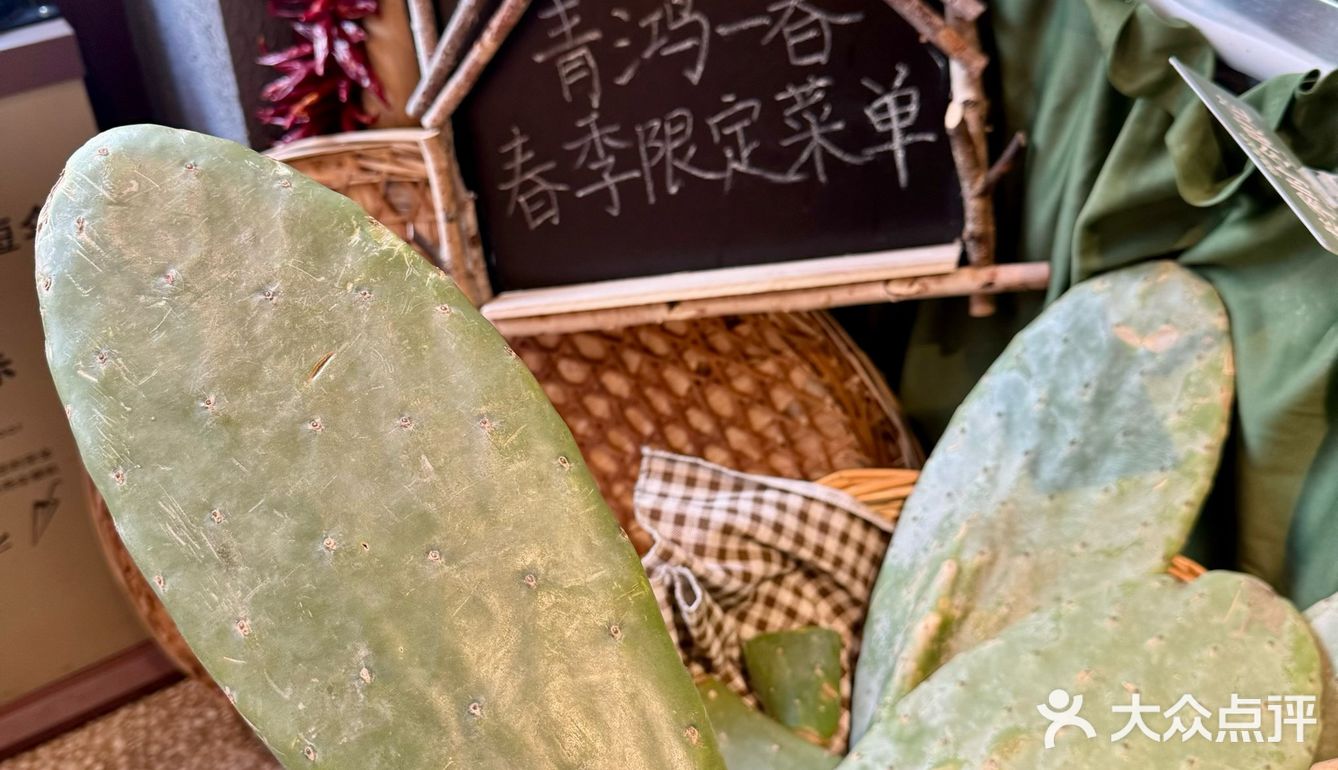 青鸿一春
春季限定菜单
大众点评